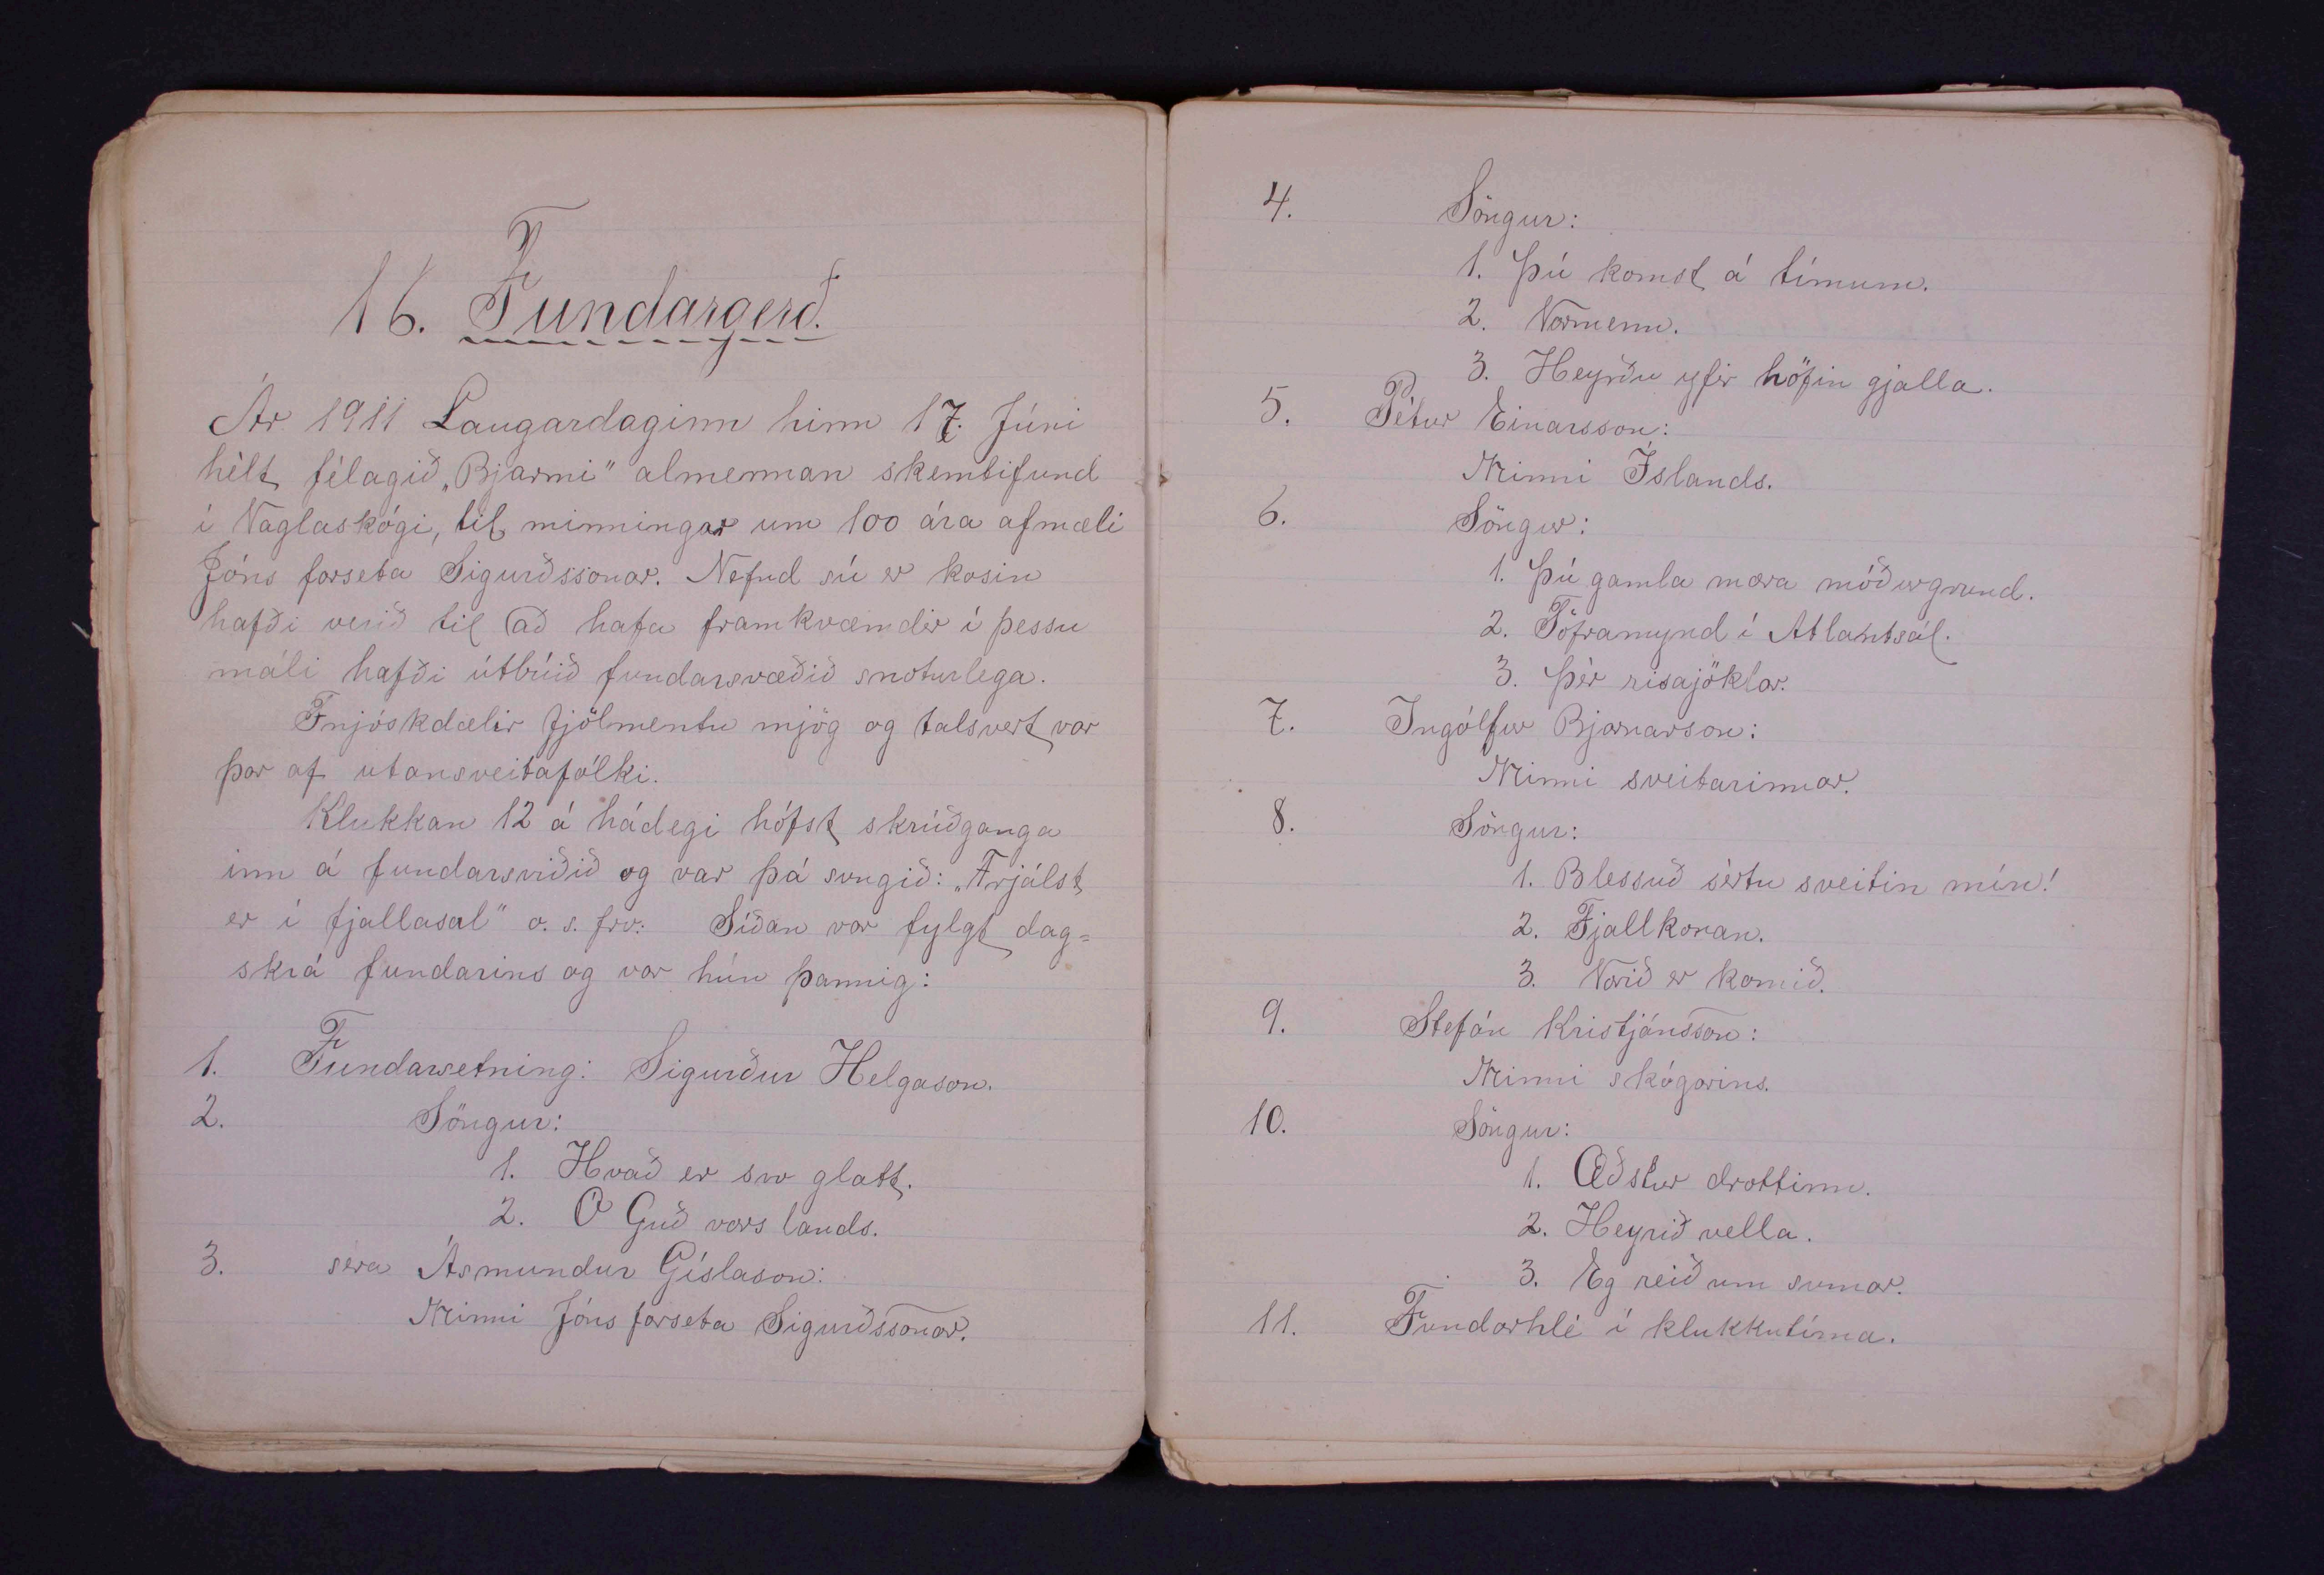 16. Fundargerð.
Ár 1911 Laugardaginn hinn 17. Júní
hèlt fèlagið „Bjarmi" almennan skemtifund
í Vaglaskógi, til minningar um 100 ára afmæli
Jóns forseta Sigurðssonar. Nefnd sú er kosin
hafði verið til að hafa framkvæmdir í þessu
máli hafði útbúið fundarsvæðið snoturlega.
Fnjóskdælir fjölmentu mjög og talsvert var
þar af utansveitafólki.
Klukkan 12 á hádegi hófst skrúðganga
inn á fundarsviðið og var þá sungið: „Frjálst
er í fjallasal" o. s. frv: Síðan var fylgt dag=
skrá fundarins og var hún þannig:
1. Fundarsetning: Sigurður Helgason.
2. Söngur:
1. Hvað er svo glatt.
2. Ó Guð vors lands.
3. sèra Ásmundur Gíslason:
Minni Jóns forseta Sigurðssonar.
4. Söngur:
1. Þú komst á tímum.
2. Vormenn.
3. Heyrðu yfir höfin gjalla.
5. Pètur Einarsson:
Minni Íslands.
6. Söngur:
1. Þú gamla mæra móðurgrund.
2. Töframynd í Atlantsál.
3. Þèr risajöklar.
7. Ingólfur Bjarnarson:
Minni sveitarinnar.
8. Söngur:
1. Blessuð sèrtu sveitin mín!
2. Fjallkonan.
3. Vorið er komið.
9. Stefán Kristjánsson:
Minni skógarins.
10. Söngur:
1. Æðstur drottinn.
2. Heyrið vella.
3. Eg reið um sumar.
11. Fundarhlè í klukkutíma.